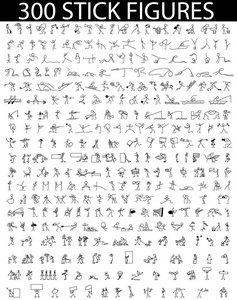 300 STICK FIGURES